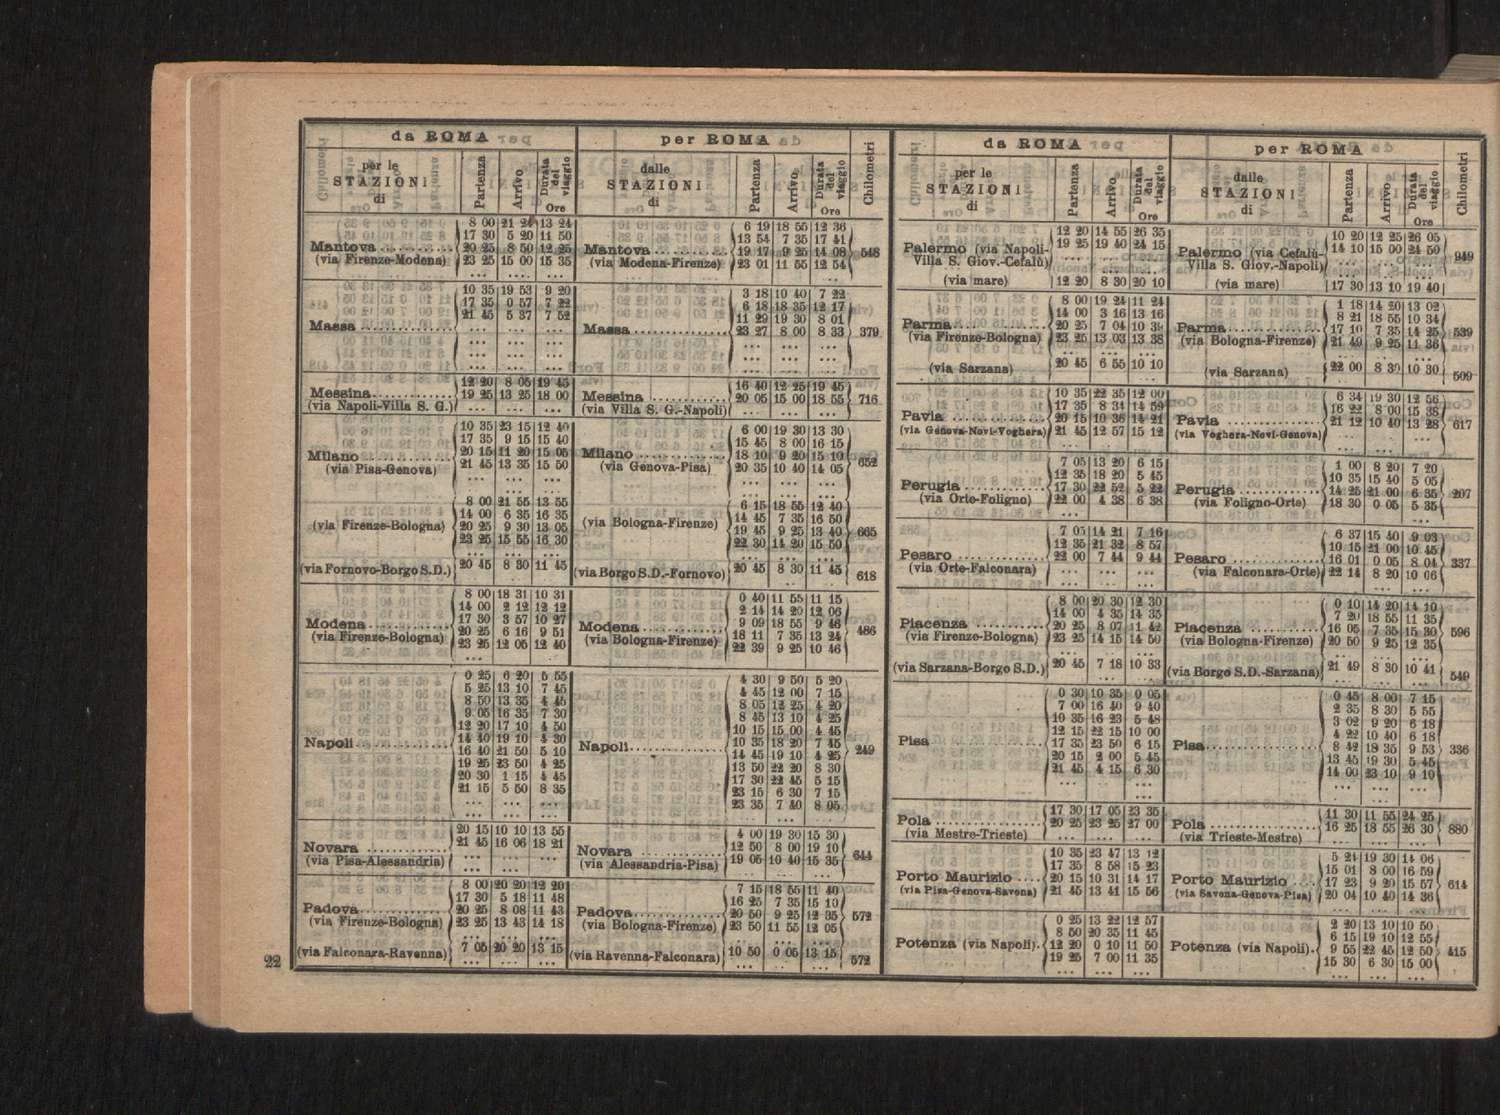 da ROMA
per le
STAZIONI
di
Partenza
Arrivo
Durata del viaggio
Ore
Mantova
(via Firenze-Modena)
8 00 21 24 13 24
17 30 5 20 11 50
20 25 8 50 12 25
23 25 15 00 15 35
Massa
10 35 19 53 9 20
17 35 0 57 7 22
21 45 5 37 7 52
Messina
(via Napoli-Villa S. G.)
12 20 8 05 19 45
19 25 13 25 18 00
Milano
(via Pisa-Genova)
10 35 23 15 12 40
17 35 9 15 15 40
20 15 11 20 15 05
21 45 13 35 15 50
(via Firenze-Bologna)
8 00 21 55 13 55
14 00 6 35 16 35
20 25 9 30 13 05
23 25 15 55 16 30
(via Fornovo-Borgo S.D.)
20 45 8 30 11 45
Modena
(via Firenze-Bologna)
8 00 18 31 10 31
14 00 2 12 12 12
17 30 3 57 10 27
20 25 6 16 9 51
23 25 12 05 12 40
Napoli
0 25 6 20 5 55
5 25 13 10 7 45
8 50 13 35 4 45
9 05 16 35 7 30
12 20 17 10 4 50
14 40 19 10 4 30
16 40 21 50 5 10
19 25 23 50 4 25
20 30 1 15 4 45
21 15 5 50 8 35
Novara
(via Pisa-Alessandria)
20 15 10 10 13 55
21 45 16 06 18 21
Padova
(via Firenze-Bologna)
8 00 20 20 12 20
17 30 5 18 11 48
20 25 8 08 11 43
23 25 13 43 14 18
(via Falconara-Ravenna)
7 05 20 20 13 15
per ROMA
dalle
STAZIONI
di
Partenza
Arrivo
Durata del viaggio
Ore
Chilometri
Mantova
(via Modena-Firenze)
6 19 18 55 12 36
13 54 7 35 17 41
19 17 9 25 14 08
23 01 11 55 12 54
548
Massa
3 18 10 40 7 22
6 18 18 35 12 17
11 29 19 30 8 01
23 27 8 00 8 33
379
Messina
(via Villa S. G.-Napoli)
16 40 12 25 19 45
20 05 15 00 18 55
716
Milano
(via Genova-Pisa)
6 00 19 30 13 30
15 45 8 00 16 15
18 10 9 20 15 10
20 35 10 40 14 05
652
(via Bologna-Firenze)
6 15 18 55 12 40
14 45 7 35 16 50
19 45 9 25 13 40
22 30 14 20 15 50
665
(via Borgo S.D.-Fornovo)
20 45 8 30 11 45
618
Modena
(via Bologna-Firenze)
0 40 11 55 11 15
2 14 14 20 12 06
9 09 18 55 9 46
18 11 7 35 13 24
22 39 9 25 10 46
486
Napoli
4 30 9 50 5 20
4 45 12 00 7 15
8 05 12 25 4 20
8 45 13 10 4 25
10 15 15 00 4 45
10 35 18 20 7 45
14 45 19 10 4 25
13 50 22 20 8 30
17 30 22 45 5 15
23 15 6 30 7 15
23 35 7 40 8 05
249
Novara
(via Alessandria-Pisa)
4 00 19 30 15 30
12 50 8 00 19 10
19 05 10 40 15 35
644
Padova
(via Bologna-Firenze)
7 15 18 55 11 40
16 25 7 35 15 10
20 50 9 25 12 35
23 50 11 55 12 05
572
(via Ravenna-Falconara)
10 50 0 05 13 15
572
da ROMA
per le
STAZIONI
di
Partenza
Arrivo
Durata del viaggio
Ore
Palermo (via Napoli-
Villa S. Giov.-Cefalù)
12 20 14 55 26 35
19 25 19 40 24 15
(via mare)
12 20 8 30 20 10
Parma
(via Firenze-Bologna)
8 00 19 24 11 24
14 00 3 16 13 16
20 25 7 04 10 39
23 25 13 03 13 38
(via Sarzana)
20 45 6 55 10 10
Pavia
(via Genova-Novi-Voghera)
10 35 22 35 12 00
17 35 8 34 14 59
20 15 10 36 14 21
21 45 12 57 15 12
Perugia
(via Orte-Foligno)
7 05 13 20 6 15
12 35 18 20 5 45
17 30 22 52 5 22
22 00 4 38 6 38
Pesaro
(via Orte-Falconara)
7 05 14 21 7 16
12 35 21 32 8 57
22 00 7 44 9 44
Piacenza
(via Firenze-Bologna)
8 00 20 30 12 30
14 00 4 35 14 35
20 25 8 07 11 42
23 25 14 15 14 50
(via Sarzana-Borgo S.D.)
20 45 7 18 10 33
Pisa
0 30 10 35 9 05
7 00 16 40 9 40
10 35 16 23 5 48
12 15 22 15 10 00
17 35 23 50 6 15
20 15 2 00 5 45
21 45 4 15 6 30
Pola
(via Mestre-Trieste)
17 30 17 05 23 35
20 25 23 25 27 00
Porto Maurizio
(via Pisa-Genova-Savona)
10 35 23 47 13 12
17 35 8 58 15 23
20 15 10 31 14 17
21 45 13 41 15 56
Potenza (via Napoli).
0 25 13 22 12 57
8 50 20 35 11 45
12 20 0 10 11 50
19 25 7 00 11 35
per ROMA
dalle
STAZIONI
di
Partenza
Arrivo
Durata del viaggio
Ore
Chilometri
Palermo (via Cefalù-
Villa S. Giov.-Napoli)
10 20 12 25 26 05
14 10 15 00 24 50
949
(via mare)
17 30 13 10 19 40
Parma
(via Bologna-Firenze)
1 18 14 20 13 02
8 21 18 55 10 34
17 10 7 35 14 25
21 49 9 25 11 36
539
(via Sarzana)
22 00 8 30 10 30
509
Pavia
(via Voghera-Novi-Genova)
6 34 19 30 12 56
16 22 8 00 15 38
21 12 10 40 13 28
617
Perugia
(via Foligno-Orte)
1 00 8 20 7 20
10 35 15 40 5 05
14 25 21 00 6 35
18 30 0 05 5 35
207
Pesaro
(via Falconara-Orte)
6 37 15 40 9 03
10 15 21 00 10 45
16 01 0 05 8 04
22 14 8 20 10 06
337
Piacenza
(via Bologna-Firenze)
0 10 14 20 14 10
7 20 18 55 11 35
16 05 7 35 15 30
20 50 9 25 12 35
596
(via Borgo S.D.-Sarzana)
21 49 8 30 10 41
549
Pisa
0 45 8 00 7 15
2 35 8 30 5 55
3 02 9 20 6 18
4 22 10 40 6 18
8 42 18 35 9 53
13 45 19 30 5 45
14 00 23 10 9 10
336
Pola
(via Trieste-Mestre)
11 30 11 55 24 25
16 25 18 55 26 30
880
Porto Maurizio
(via Savona-Genova-Pisa)
5 24 19 30 14 06
15 01 8 00 16 59
17 23 9 20 15 57
20 04 10 40 14 36
614
Potenza (via Napoli).
2 20 13 10 10 50
6 15 19 10 12 55
9 55 22 45 12 50
15 30 6 30 15 00
415
22